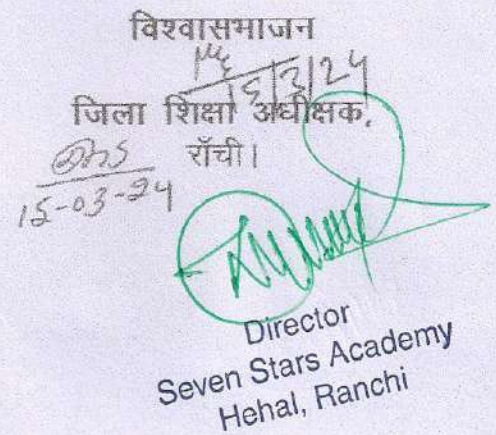 विश्वासभाजन
जिला शिक्षा अधीक्षक,
राँची।
15-03-24
Director
Seven Stars Academy
Hehal, Ranchi